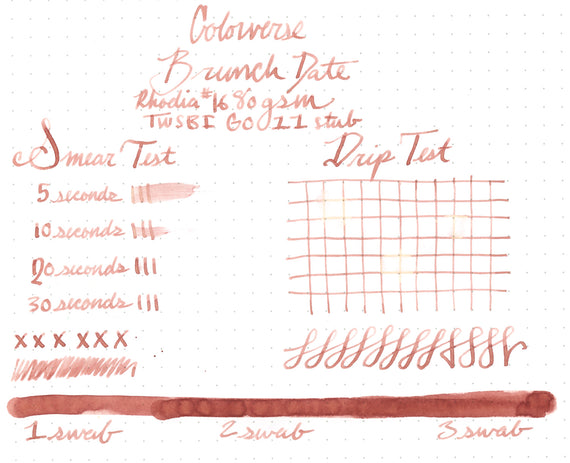 Colorverse
Brunch Date
Rhodia #16 80gsm
TWSBI GO 1.1 stub
Smear Test
Drip Test
5 seconds
10 seconds
20 seconds
30 seconds
x x x x x x
1 swab
2 swab
3 swab